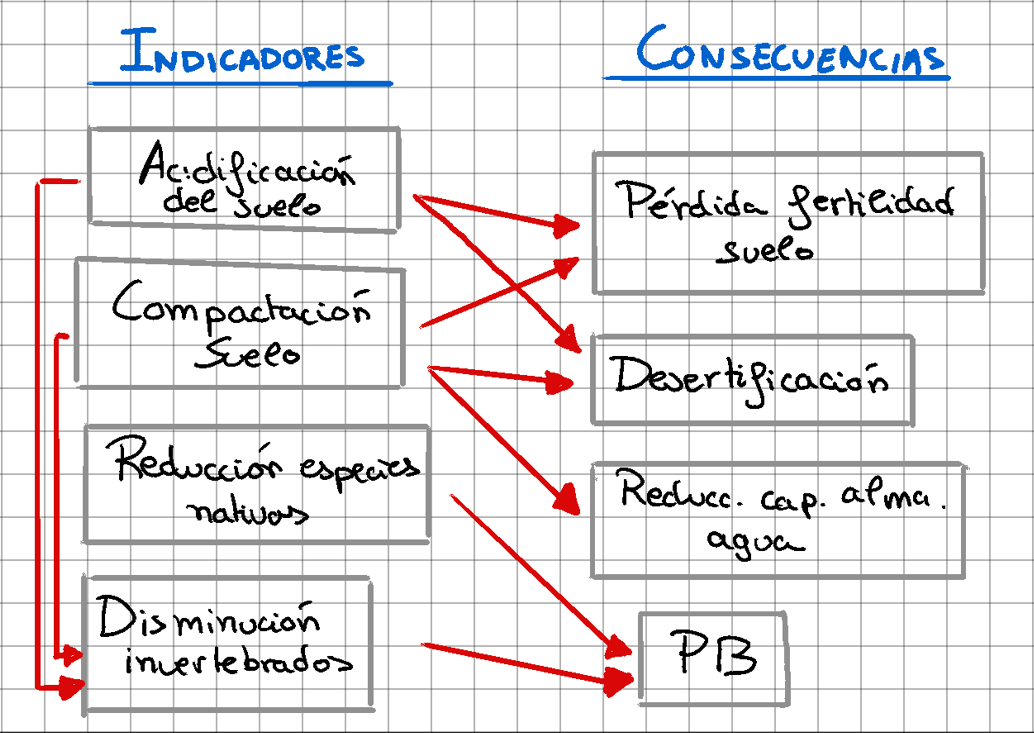 INDICADORES
Acidificación
del suelo
Compactación
Suelo
Reducción especies
nativas
Disminución
invertebrados
CONSECUENCIAS
Pérdida fertilidad
suelo
Desertificación
Reducc. cap. alma.
agua
PB